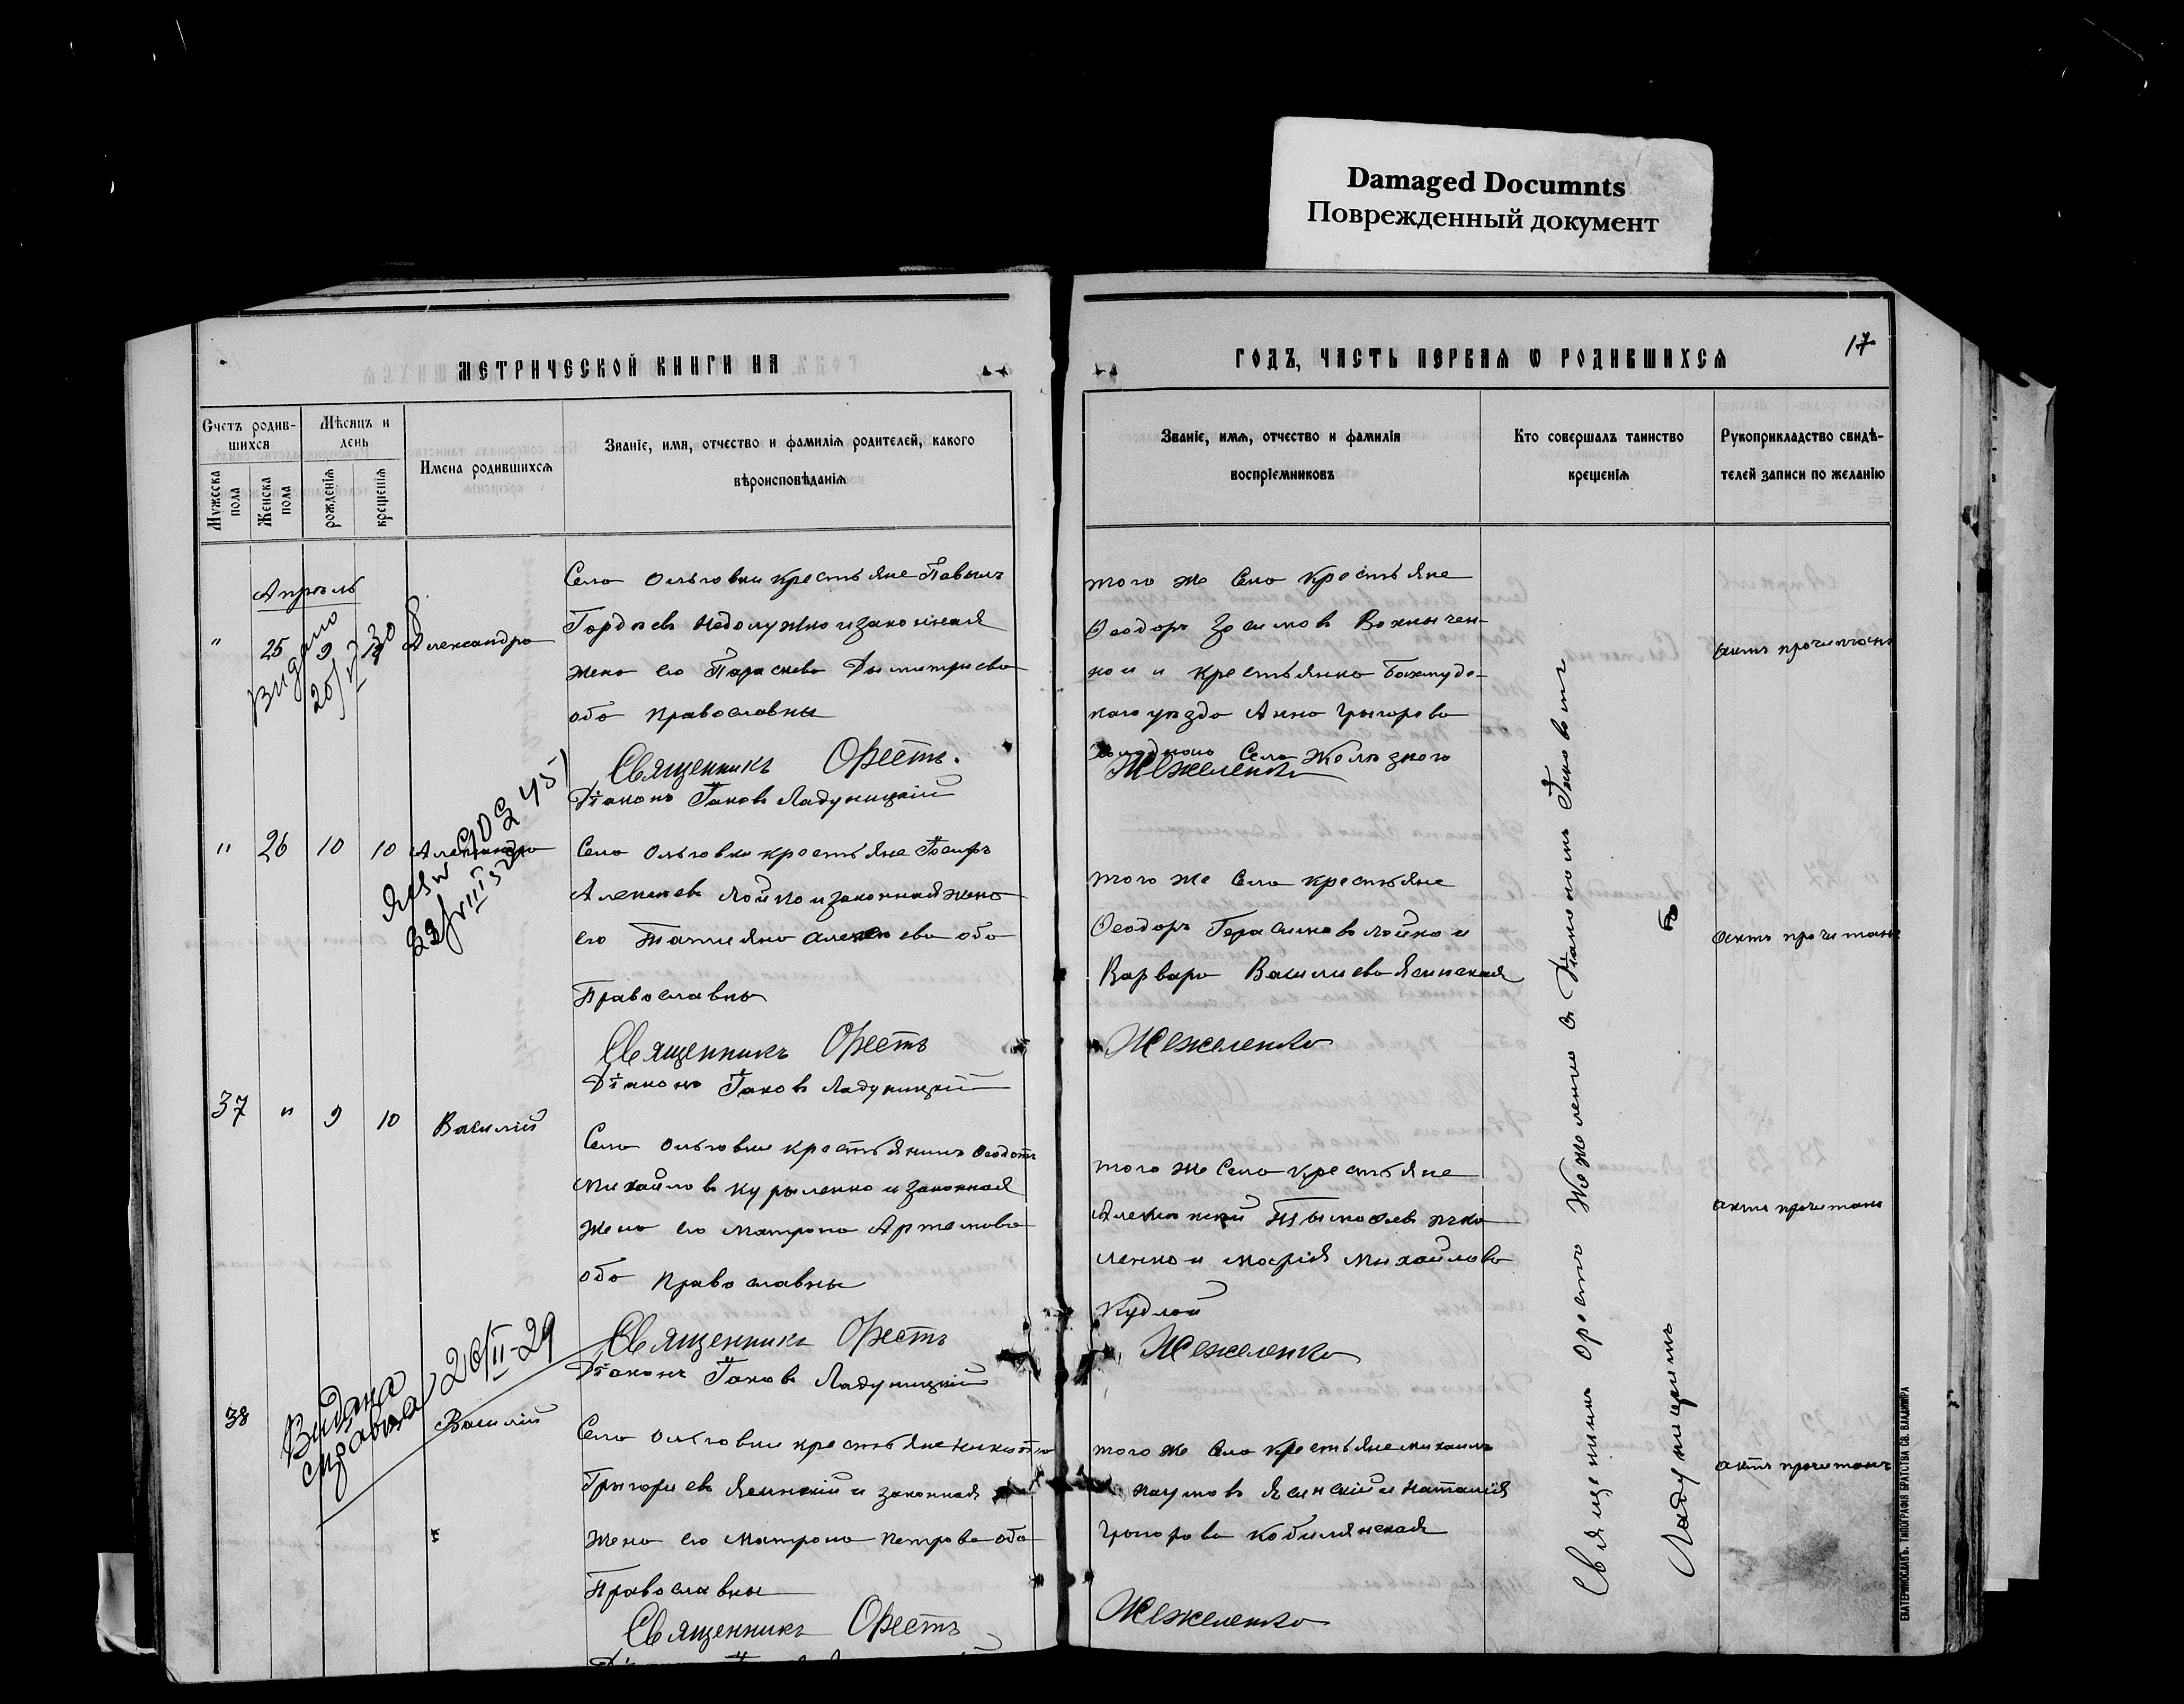 Damaged Documnts
Поврежденный документ
МЕТРИЧЕСКОЙ КНИГИ НА
ГОДЪ, ЧАСТЬ ПЕРВАЯ Ѡ РОДИВШИХСЯ
17
Счетъ родив-
шихся
Мужеска
пола
Женска
пола
Мѣсяцъ и
день
рожденія
крещенія
Имена родившихся
Званіе, имя, отчество и фамилія родителей, какого
вѣроисповѣданія
Званіе, имя, отчество и фамилія
воспріемниковъ
Кто совершалъ таинство
крещенія
Рукоприкладство свидѣ-
телей записи по желанію
Апрѣль
" 25 9 Александра
Видано
Село Ольговки крестьяне Павелъ
Гордѣевъ и законная
жена его Параскева Дымитріева
оба православны
Священникъ Орестъ
Діаконъ Іаковъ Ладуницкій
того же Села Крестьяне
Ѳеодоръ Зосимовъ
и крестьянка Бахмутс-
каго уѣзда Анна Грыгорева
Села Желѣзного
Жежеленко
актъ прочитанъ
" 26 10 10 Александра
Село Ольговки крестьяне
Алексѣевъ Лойко и законная жена
его Татіяна Алексѣева оба
Православны
Священникъ Орестъ
Діаконъ Іаковъ Ладуницкій
того же Села крестьяне
Ѳеодоръ Герасимовъ Лойко и
Варвара Василиева Ясинская
Жежеленко
актъ прочитанъ
37 " 9 10 Василій
Село Ольговки крестьянинъ Ѳеодотъ
Михайловъ Курыленко и законная
жена его Матрона Артемова
оба Православны
Священникъ Орестъ
Діаконъ Іаковъ Ладуницкій
того же Села крестьяне
ленко и Марія Михайлова
Кудлай
Жежеленко
актъ прочитанъ
38 Василій
Видана
справка 26/II-29
Село Ольговки крестьяне Никита
Грыгориевъ Ясинскій и законная
жена его Матрона Петрова оба
Православны
Священникъ Орестъ
того же Села Крестьяне Михаилъ
Наумовъ Ясинскій и Наталія
Грыгорова Кобилянская
Жежеленко
актъ прочитанъ
Священникъ Орестъ Жежеленко съ Діакономъ Іаковомъ
Ладуницкимъ
ЕКАТЕРИНОСЛАВЪ. ТИПОГРАФІЯ БРАТСТВА СВ. ВЛАДИМІРА